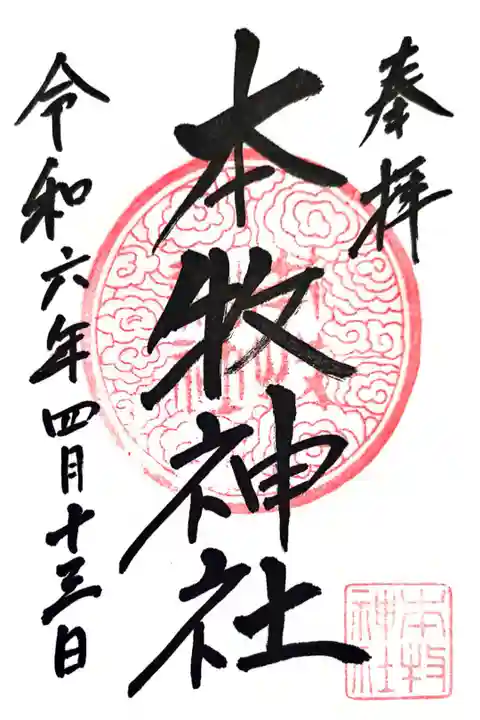 奉拝
本牧神社
令和六年四月十三日
本牧
神社